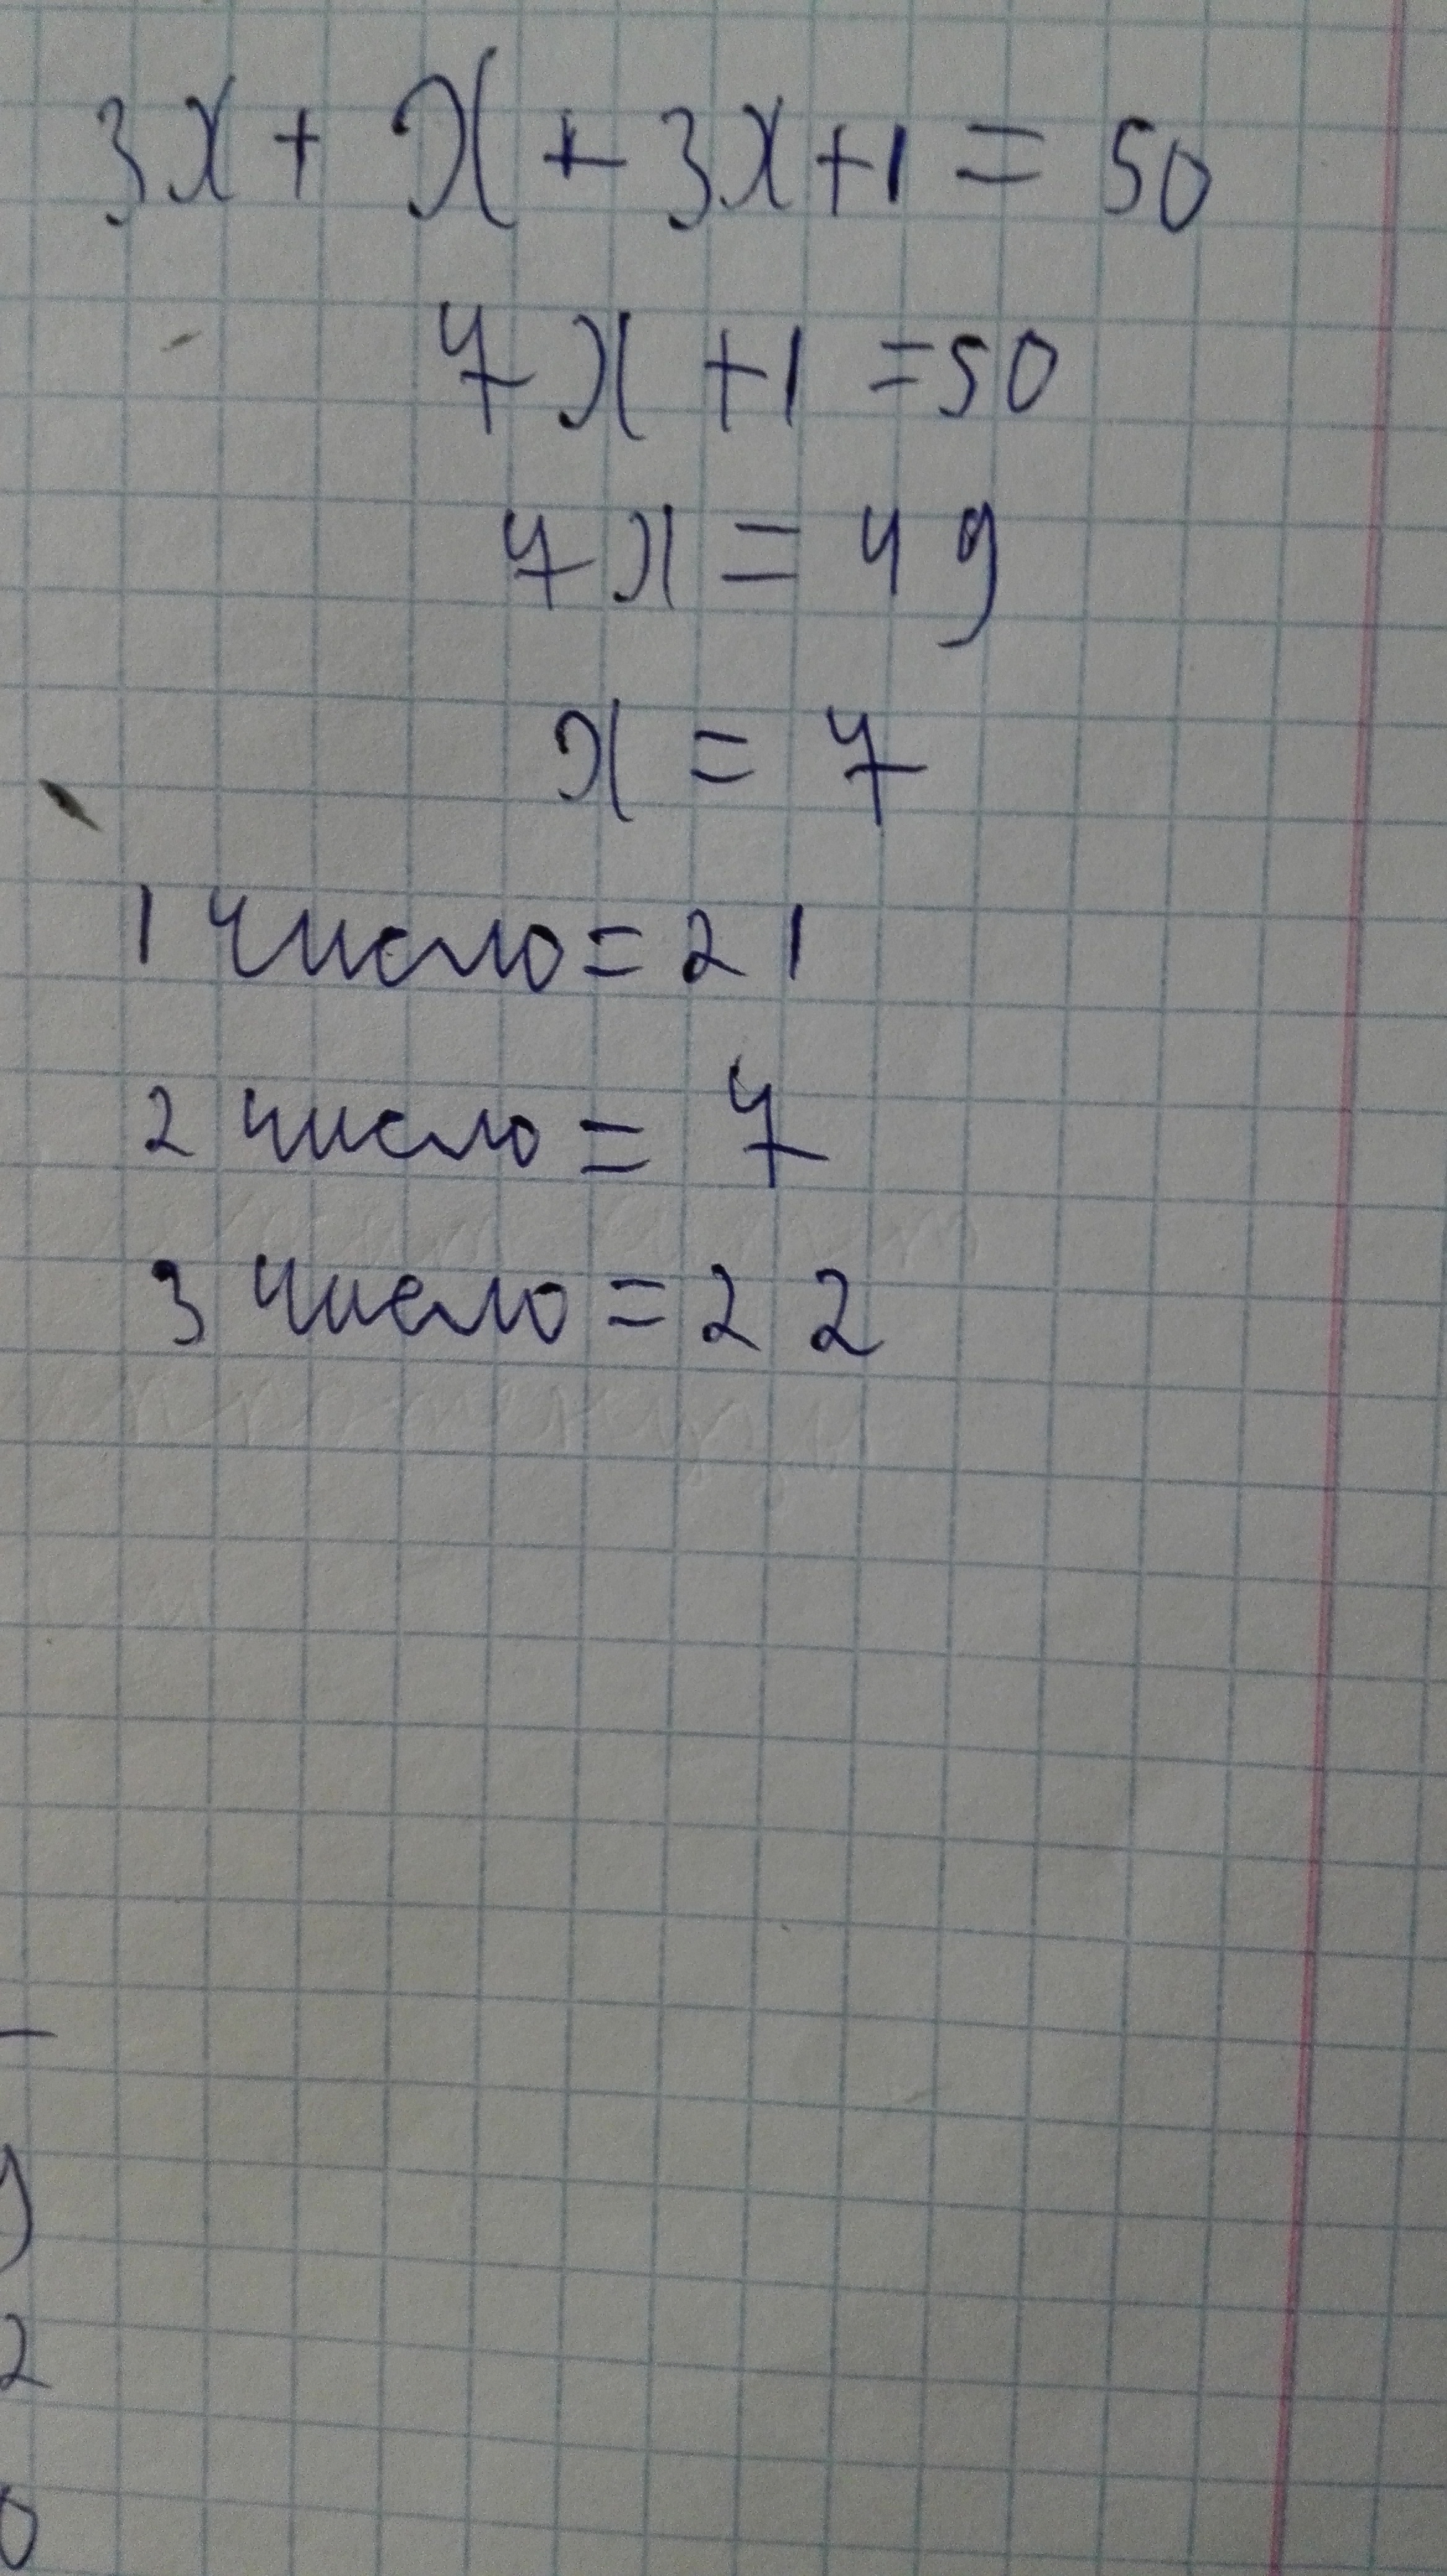 3x + x + 3x + 1 = 50
7x + 1 = 50
7x = 49
x = 7
1 число = 21
2 число = 7
3 число = 22
9
2
0